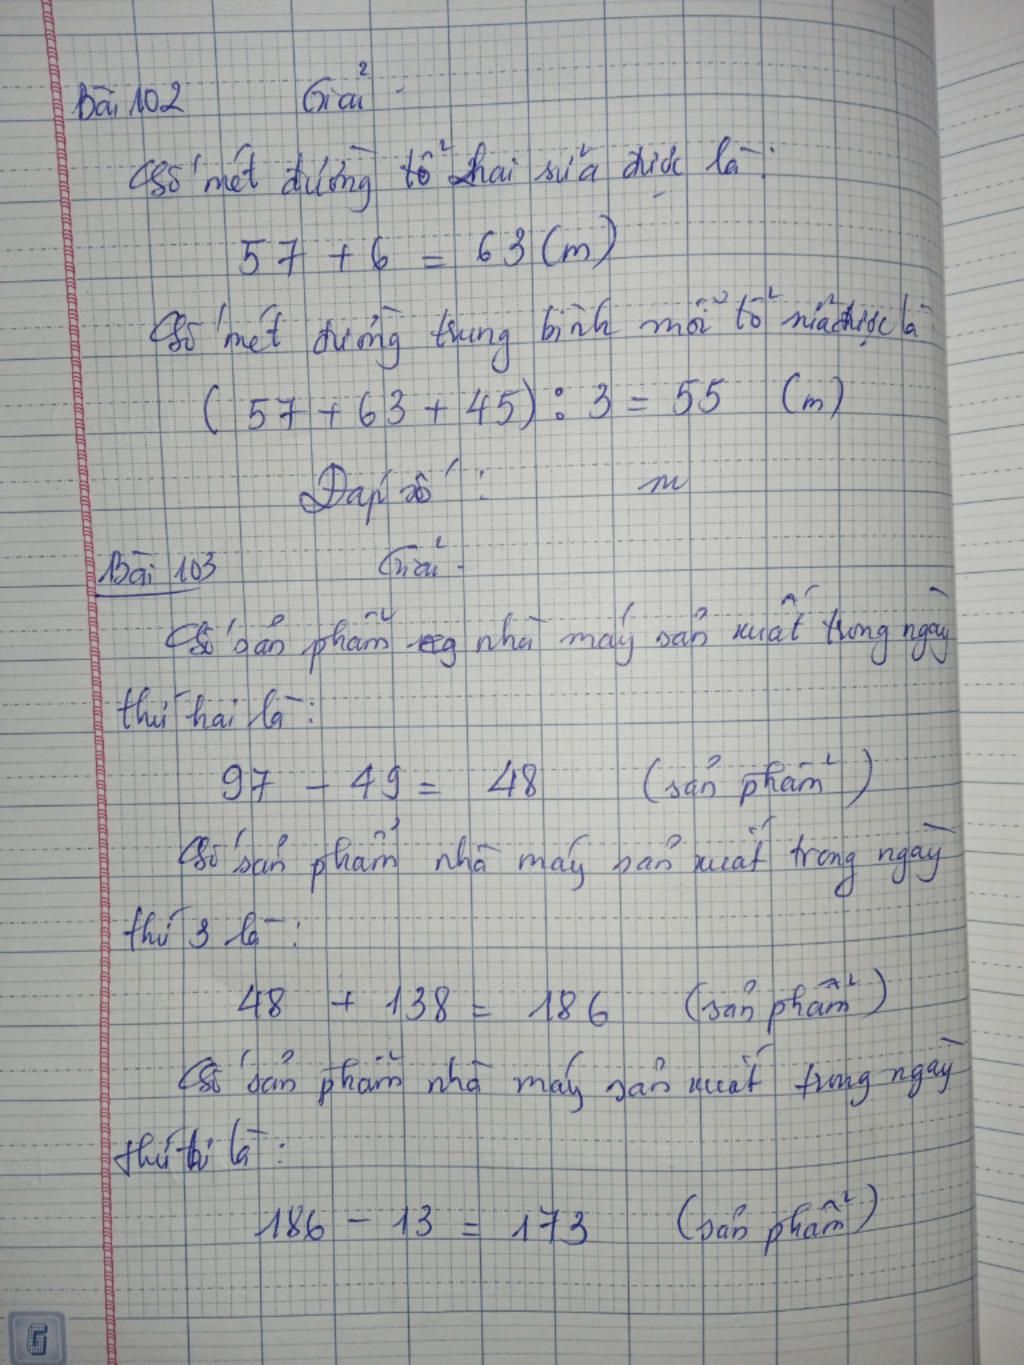 Bài 102 Giải
Số mét đường tổ hai sửa được là:
57 + 6 = 63 (m)
Số mét đường trung bình mỗi tổ sửa được là
( 57 + 63 + 45) : 3 = 55 (m)
Đáp số : m
Bài 103 Giải
Số sản phẩm nhà máy sản xuất trong ngày
thứ hai là :
97 - 49 = 48 (sản phẩm)
Số sản phẩm nhà máy sản xuất trong ngày
thứ 3 là :
48 + 138 = 186 (sản phẩm)
Số sản phẩm nhà máy sản xuất trong ngày
thứ tư là :
186 - 13 = 173 (sản phẩm)
G